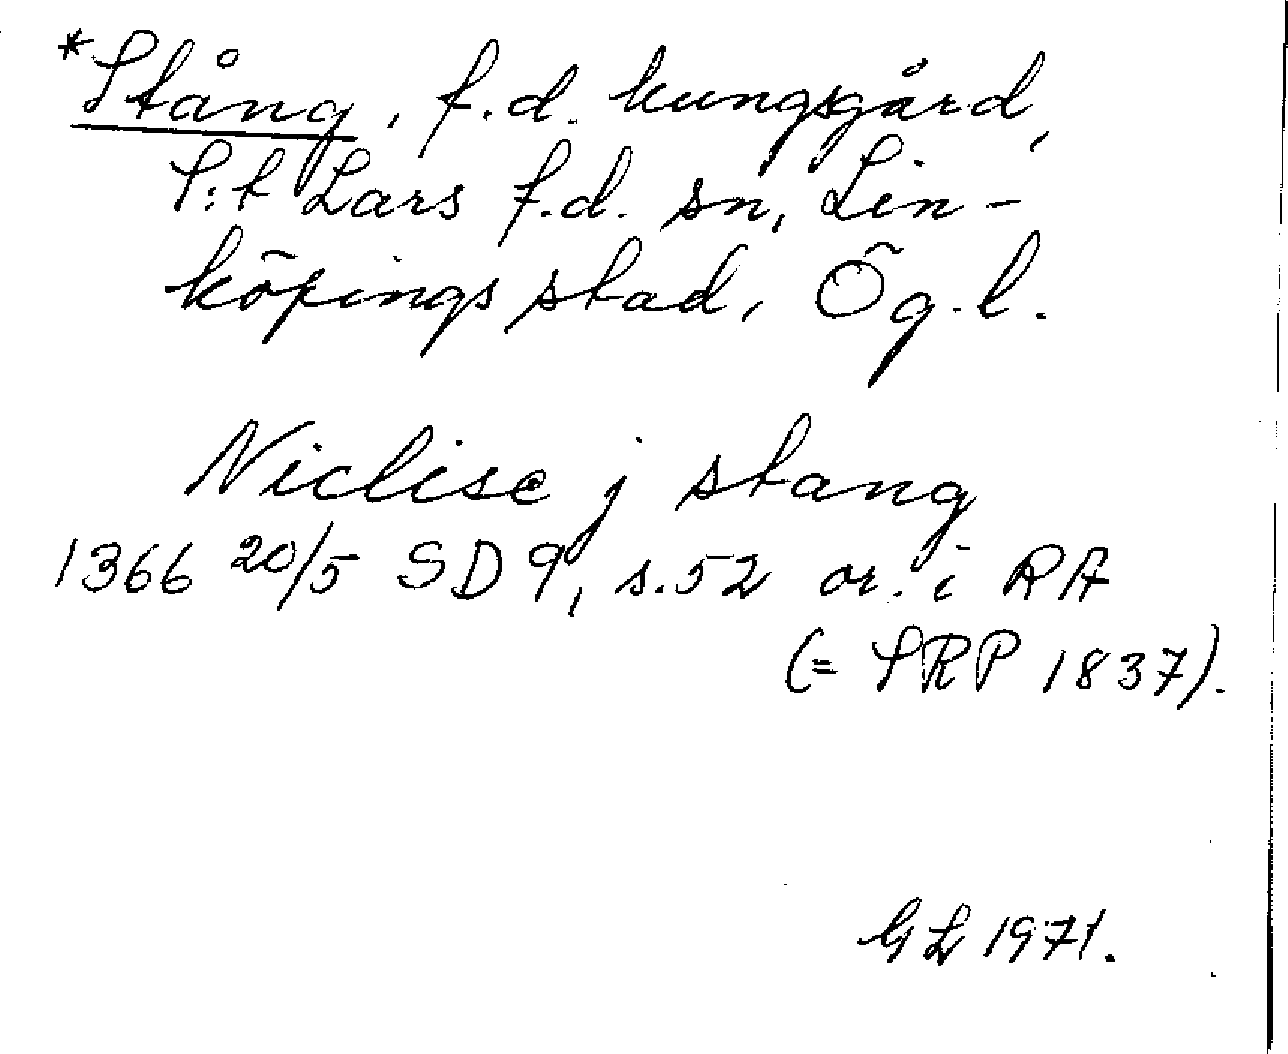 *Stång, f.d. kungsgård,
S:t Lars f.d. sn, Lin-
köpings stad, Ög. l.
Niclise j stang
1366 20/5 SD 9, s. 52 or. i RA
(= SRP 1837).
GL 1971.